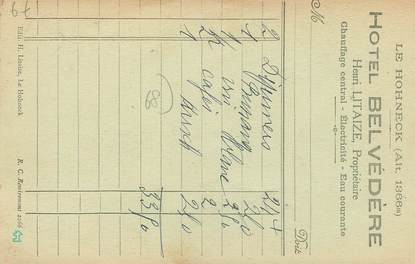 LE HOHNECK (Alt. 1366m)
HOTEL BELVÉDÈRE
Henri LITAIZE, Propriétaire
Chauffage central - Électricité - Eau courante
M
Doit:
2 Déjeuners 24
1
1/2 vin 2/50
2 cafés 2
1 2/50
33/50
(88)
Edit. H. Litaize, Le Hohneck
R. C. Remiremont 2066